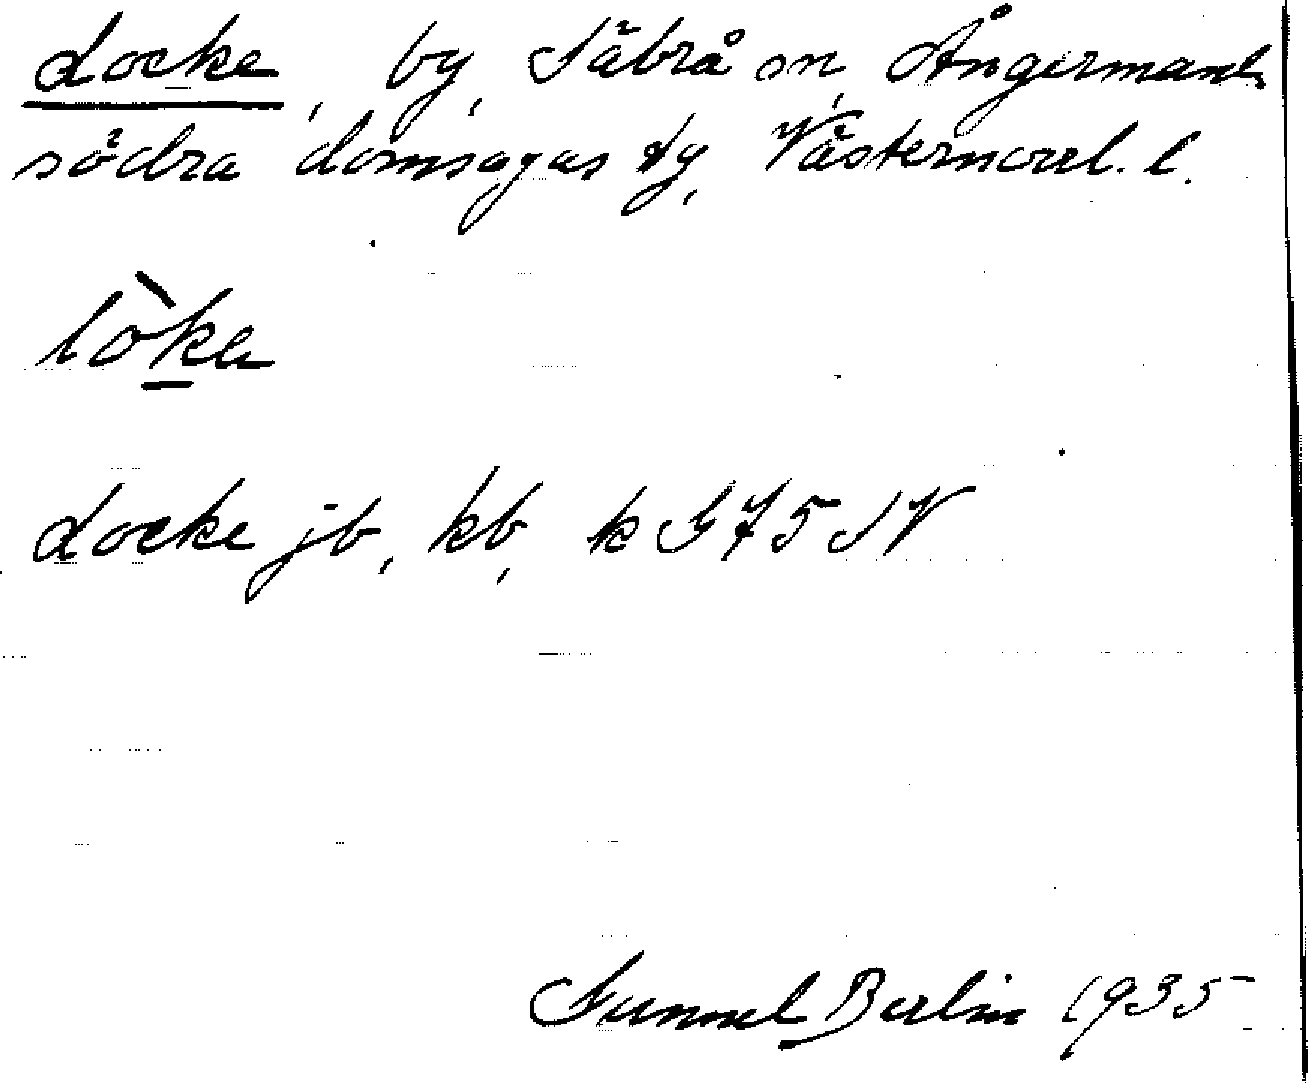 Locke, by, Säbrå sn, Ångermanl.
södra domsagas tg, Västernorrl. l.
lòke
Locke jb, kb, k G 75 SV
Gunnel Berlin 1935